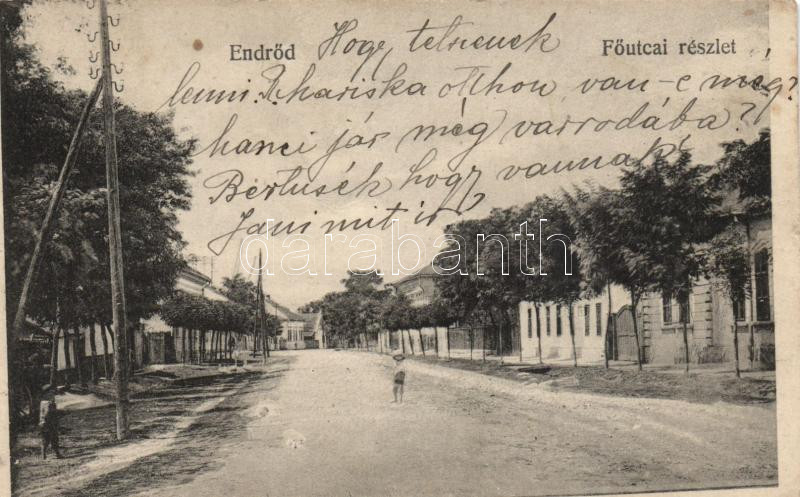 Endrőd
Főutcai részlet
Hogy tetszenek
lenni. Rhariska otthon van-e még?
hanci jár még varrodába?
Bertusék hogy vannak
Jani mit ir
darabanth